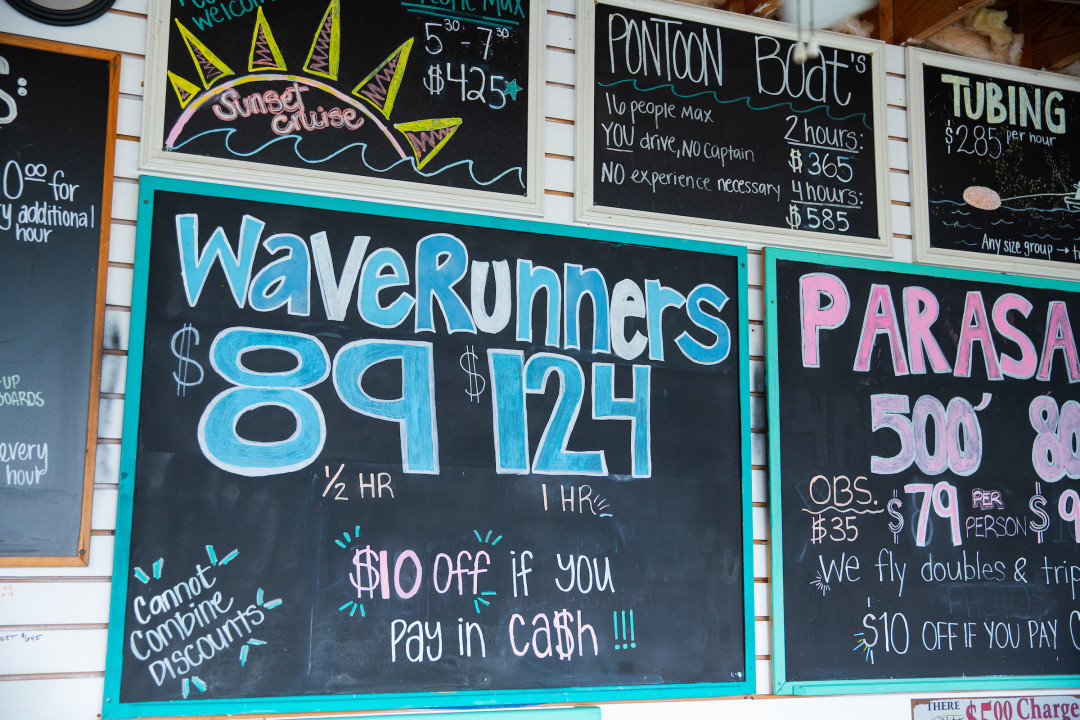 S:
0⁰⁰ for
y additional
hour
-UP
BOARDS
every
hour
welcome
People Max
5³⁰ - 7³⁰
$425
Sunset
Cruise
PONTOON BOAT's
16 people Max
YOU drive, NO Captain
NO experience necessary
2 hours:
$365
4 hours:
$585
TUBING
$285 per hour
Any size group →
WAVERUNNERS
$89 $124
½ HR
1 HR
$10 OFF if you
pay in ca$h !!!
Cannot
Combine
Discounts
PARASA
500' 80
OBS.
$35
$79 PER
PERSON
$9
We fly doubles & trip
$10 OFF IF YOU PAY C
THERE
$5.00 Charge